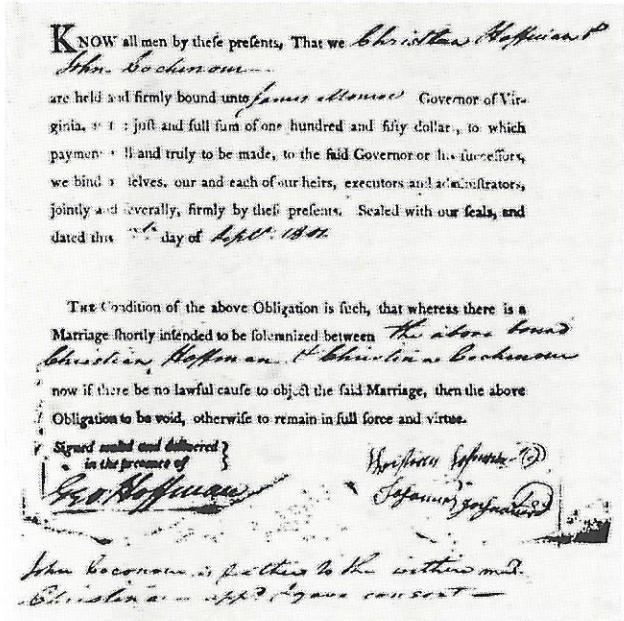 KNOW all men by theſe preſents, That we Christian Hoffman &
John Cochenour
are held and firmly bound unto James Monroe Governor of Vir-
ginia, juſt and full ſum of one hundred and fifty dollars, to which
payment and truly to be made, to the ſaid Governor or his ſucceſſors,
we bind ourſelves, our and each of our heirs, executors and adminiſtrators,
jointly and ſeverally, firmly by theſe preſents. Sealed with our ſeals, and
dated this day of Septr. 1801
THE Condition of the above Obligation is ſuch, that whereas there is a
Marriage ſhortly intended to be ſolemnized between the above bound
Christian Hoffman & Christina Cochenour
now if there be no lawful cauſe to object the ſaid Marriage, then the above
Obligation to be void, otherwiſe to remain in full force and virtue.
Signed sealed and delivered
in the presence of
Geo Hoffman
John Coconour is father to the within md.
Christina appd & gave consent —